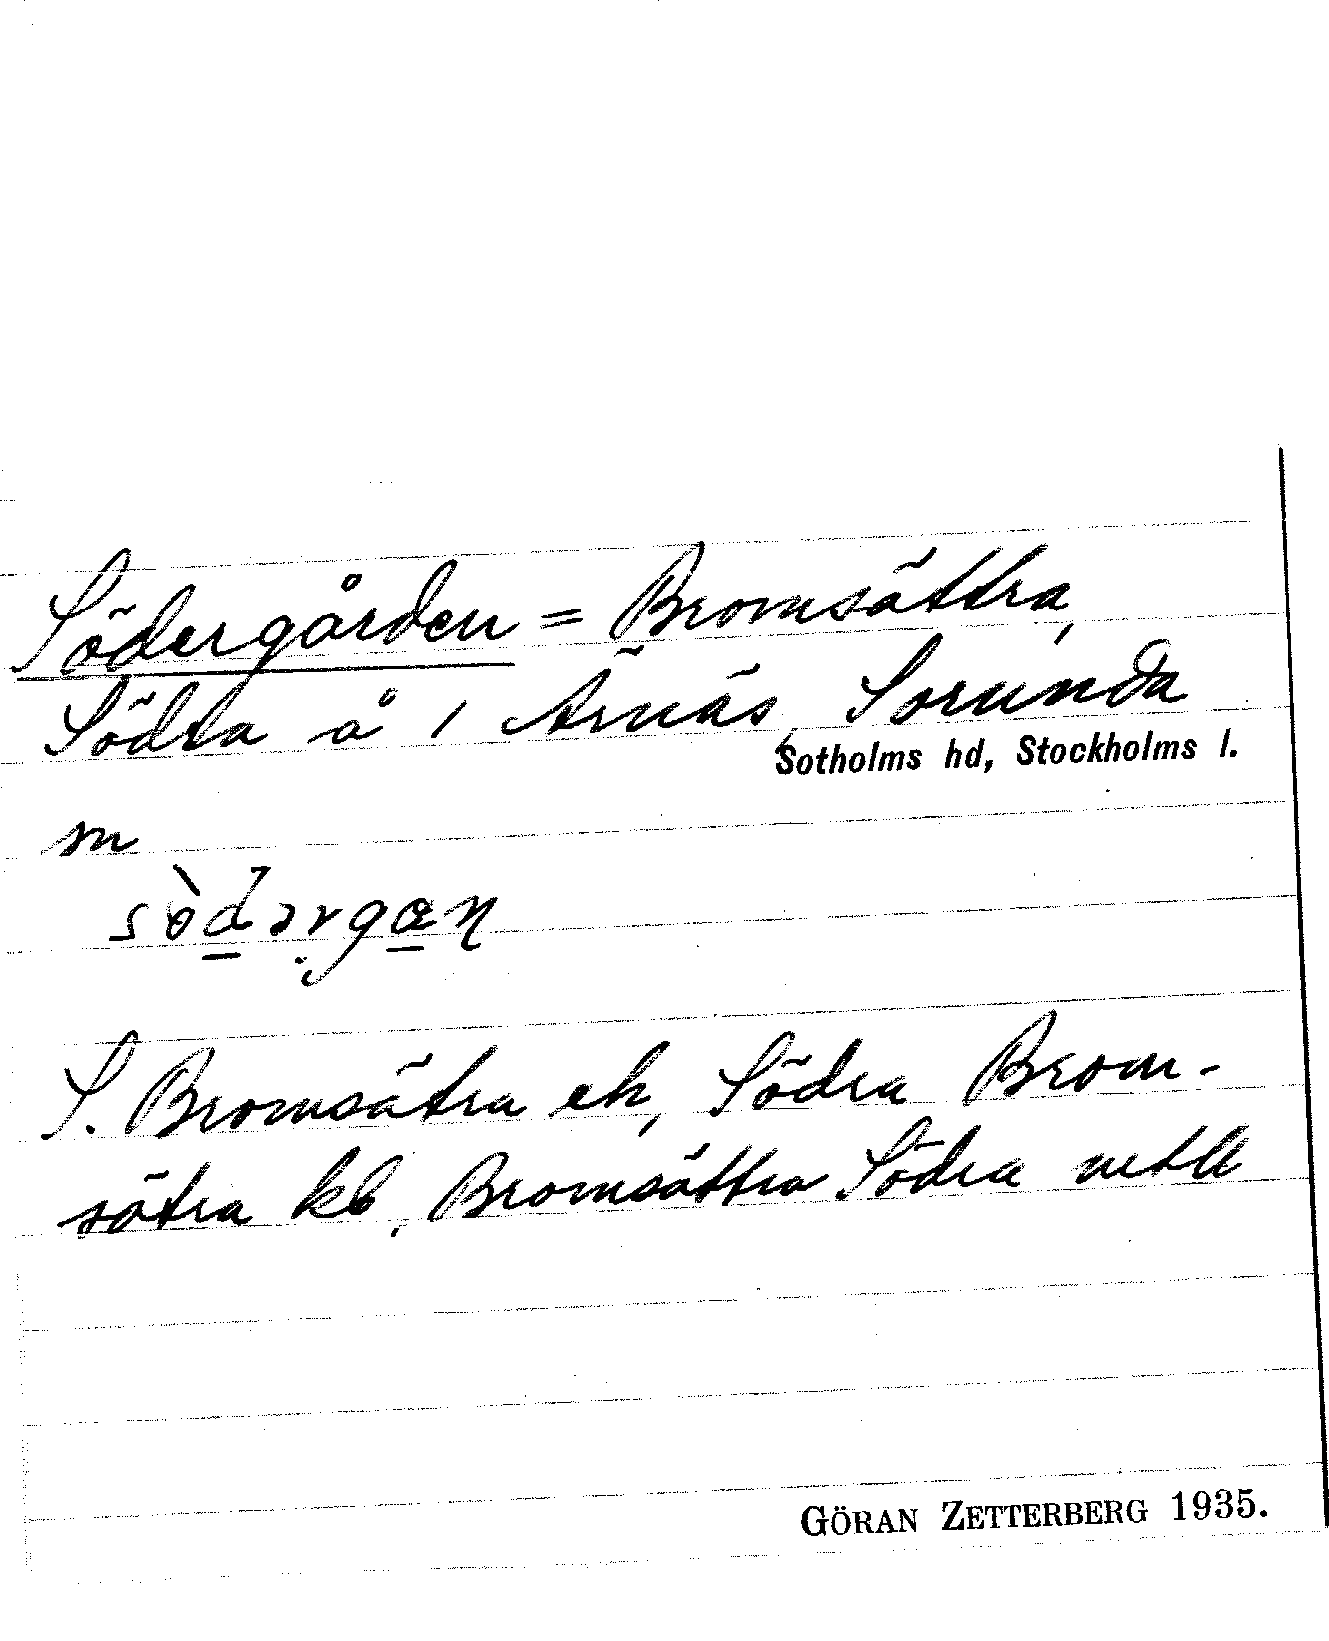 Södergården = Bromsättra,
Södra å 1 Ärnäs, Sorunda
Sotholms hd, Stockholms l.
m
sòdərgan
S. Bromsätra ek, Södra Brom-
sätra kb, Bromsättra Södra
GÖRAN ZETTERBERG 1935.